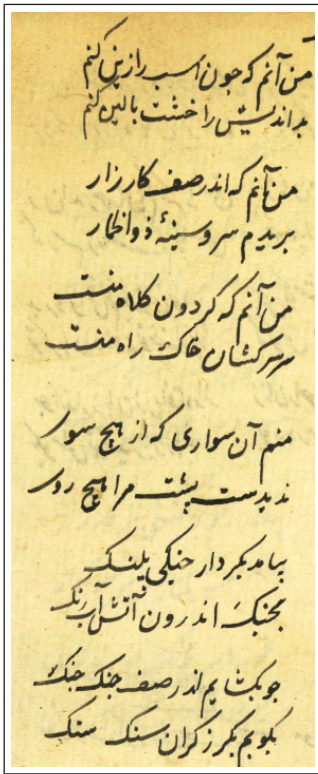 من آنم که چون اسب را زین کنم
بد اندیش را خشت بالین کنم
من آنم که اندر صف کارزار
بریدم سر و سینهٔ ذوالخمار
من آنم که گردون کلاه منست
سر سرکشان خاک راه منست
منم آن سواری که از هیچ سو
ندیدست پشت مرا هیچ رو
بیامد بکردار جنگی پلنک
بجنک اندرون آتش آب رنک
چو بکشایم اندر صف جنک جنک
بکوبم بکرز کران سنک سنک